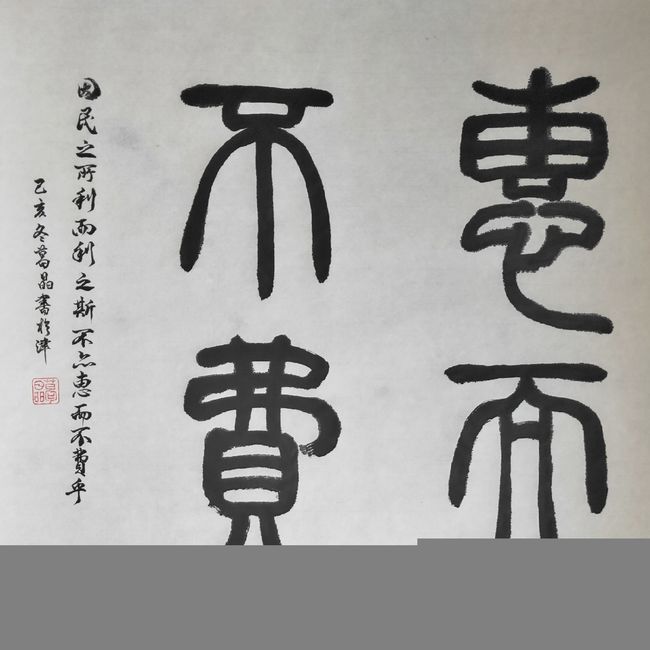 惠而
不費
因民之所利而利之斯不亦惠而不費乎
己亥冬葛晶書於津